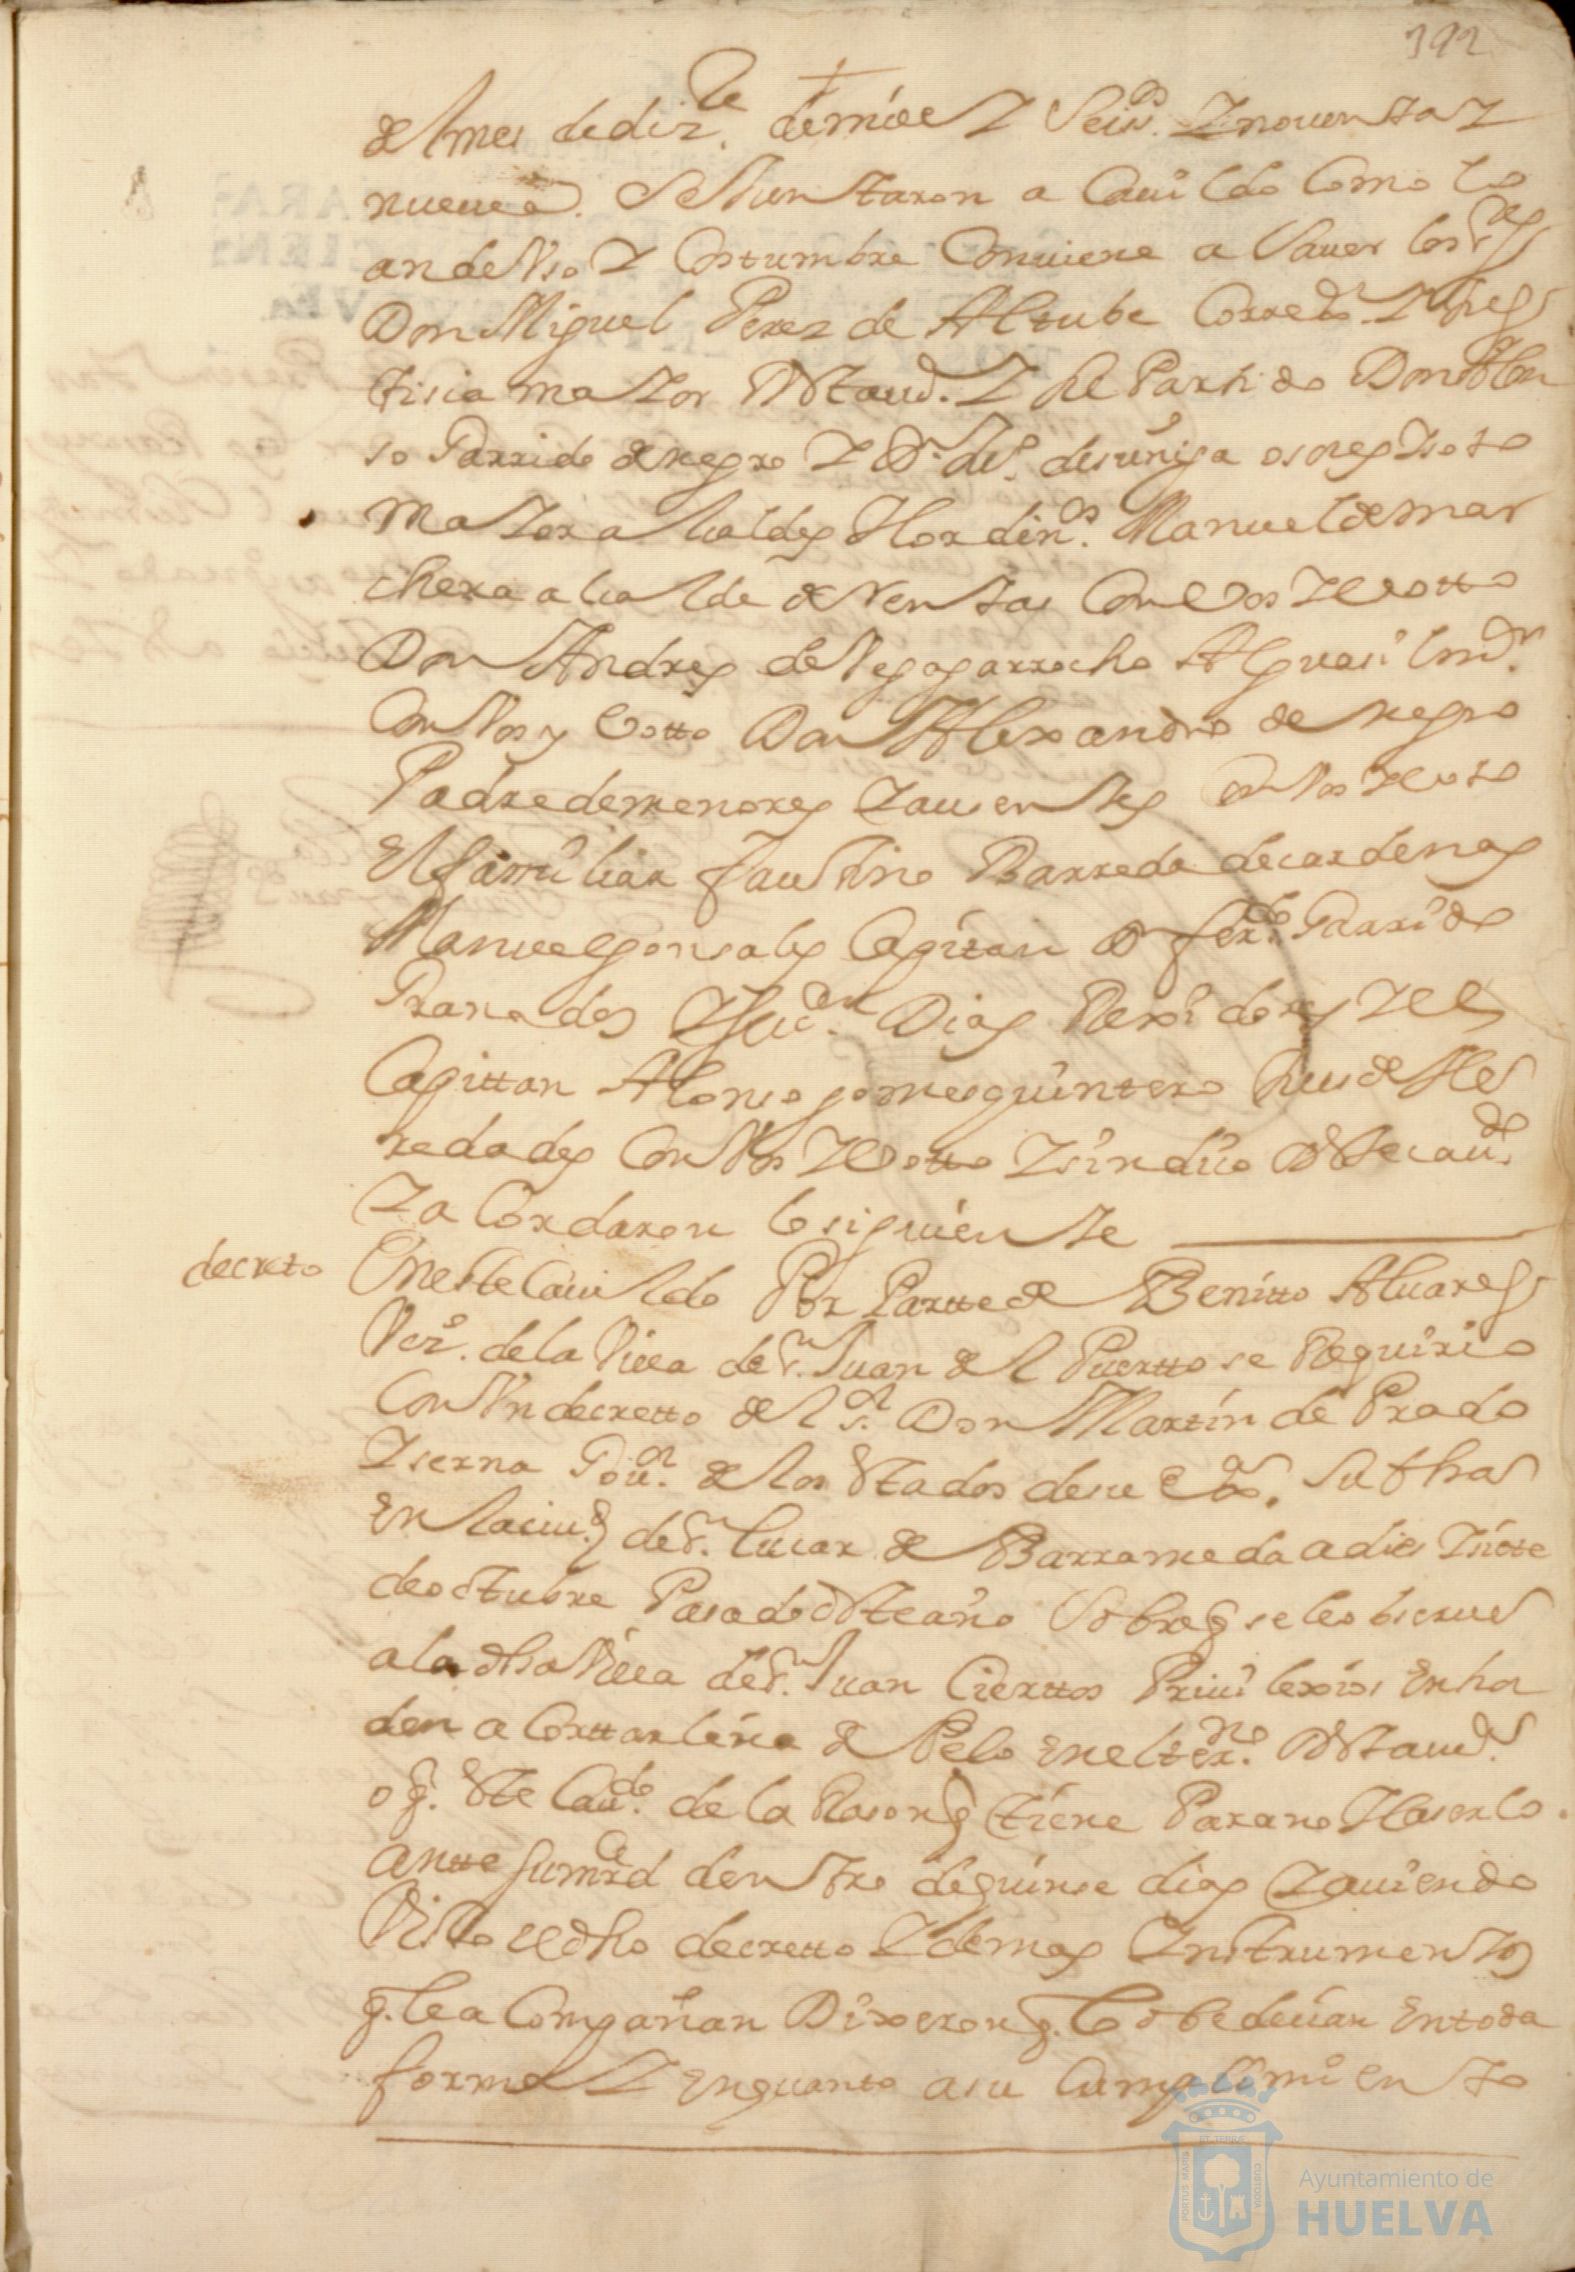 192
del mes de diz.re de mill y Seis.os y nouenta y
nueue. Se Juntaron a Cauildo Como lo
an de Vso y Costumbre Conuiene a Sauer los s.res
Don Miguel Perez de Altube Correx.or y Jus
tisia mayor Desta ud. y su Partido Don Alon
so Garrido de negro y D.n de suñiga
mayor alcaldes Hordin.os Manuel de mar
chena alcalde de Ventas Con Vos y Votto
Don Andres de Vegagarrocha Alguasil m.or
Con Vos y Votto Don Alexandro de negro
Padre de menores y ausentes Con Vos y Voto
El familiar faustino Barreda de cardenas
Manuel gonsales Capitan D.n fer.do Garrido
Granados y Diaz Rexidores y el
Capittan Alonso gomes quintero Jues de He
redades Con Vos y Votto y sindico Deste cau.do
y a Cordaron lo siguiente
decreto
En este Cauildo Por Partte de Benitto Aluares
Vez.o de la Villa de S.n Juan del Puertto se Requirio
Con Vn decretto del s.or Don Martin de Prado
y serna Gou.or de los Estados de su Ex.a Su fha
En la ciu.d de S.n lucar de Barrameda a dies y siete
de octubre Pasado deste año Sobre q se le obserue
a la dha Villa de S.n Juan Ciertos Priuilexios En ha
den a Corttar leña de Pelo en el ter.no Desta ud.
o q. Este Cau.do de la Rason q tiene Para no Haserlo.
antte su mrd dentro de quinse dias y auiendo
Visto el dho decretto y demas Instrumentos
q. le a Compañan Dixeron q. lo obedecian En toda
forma y en quanto a su Cumplimiento
PORTUS MARIS
ET TERRÆ
CUSTODIA
Ayuntamiento de
HUELVA